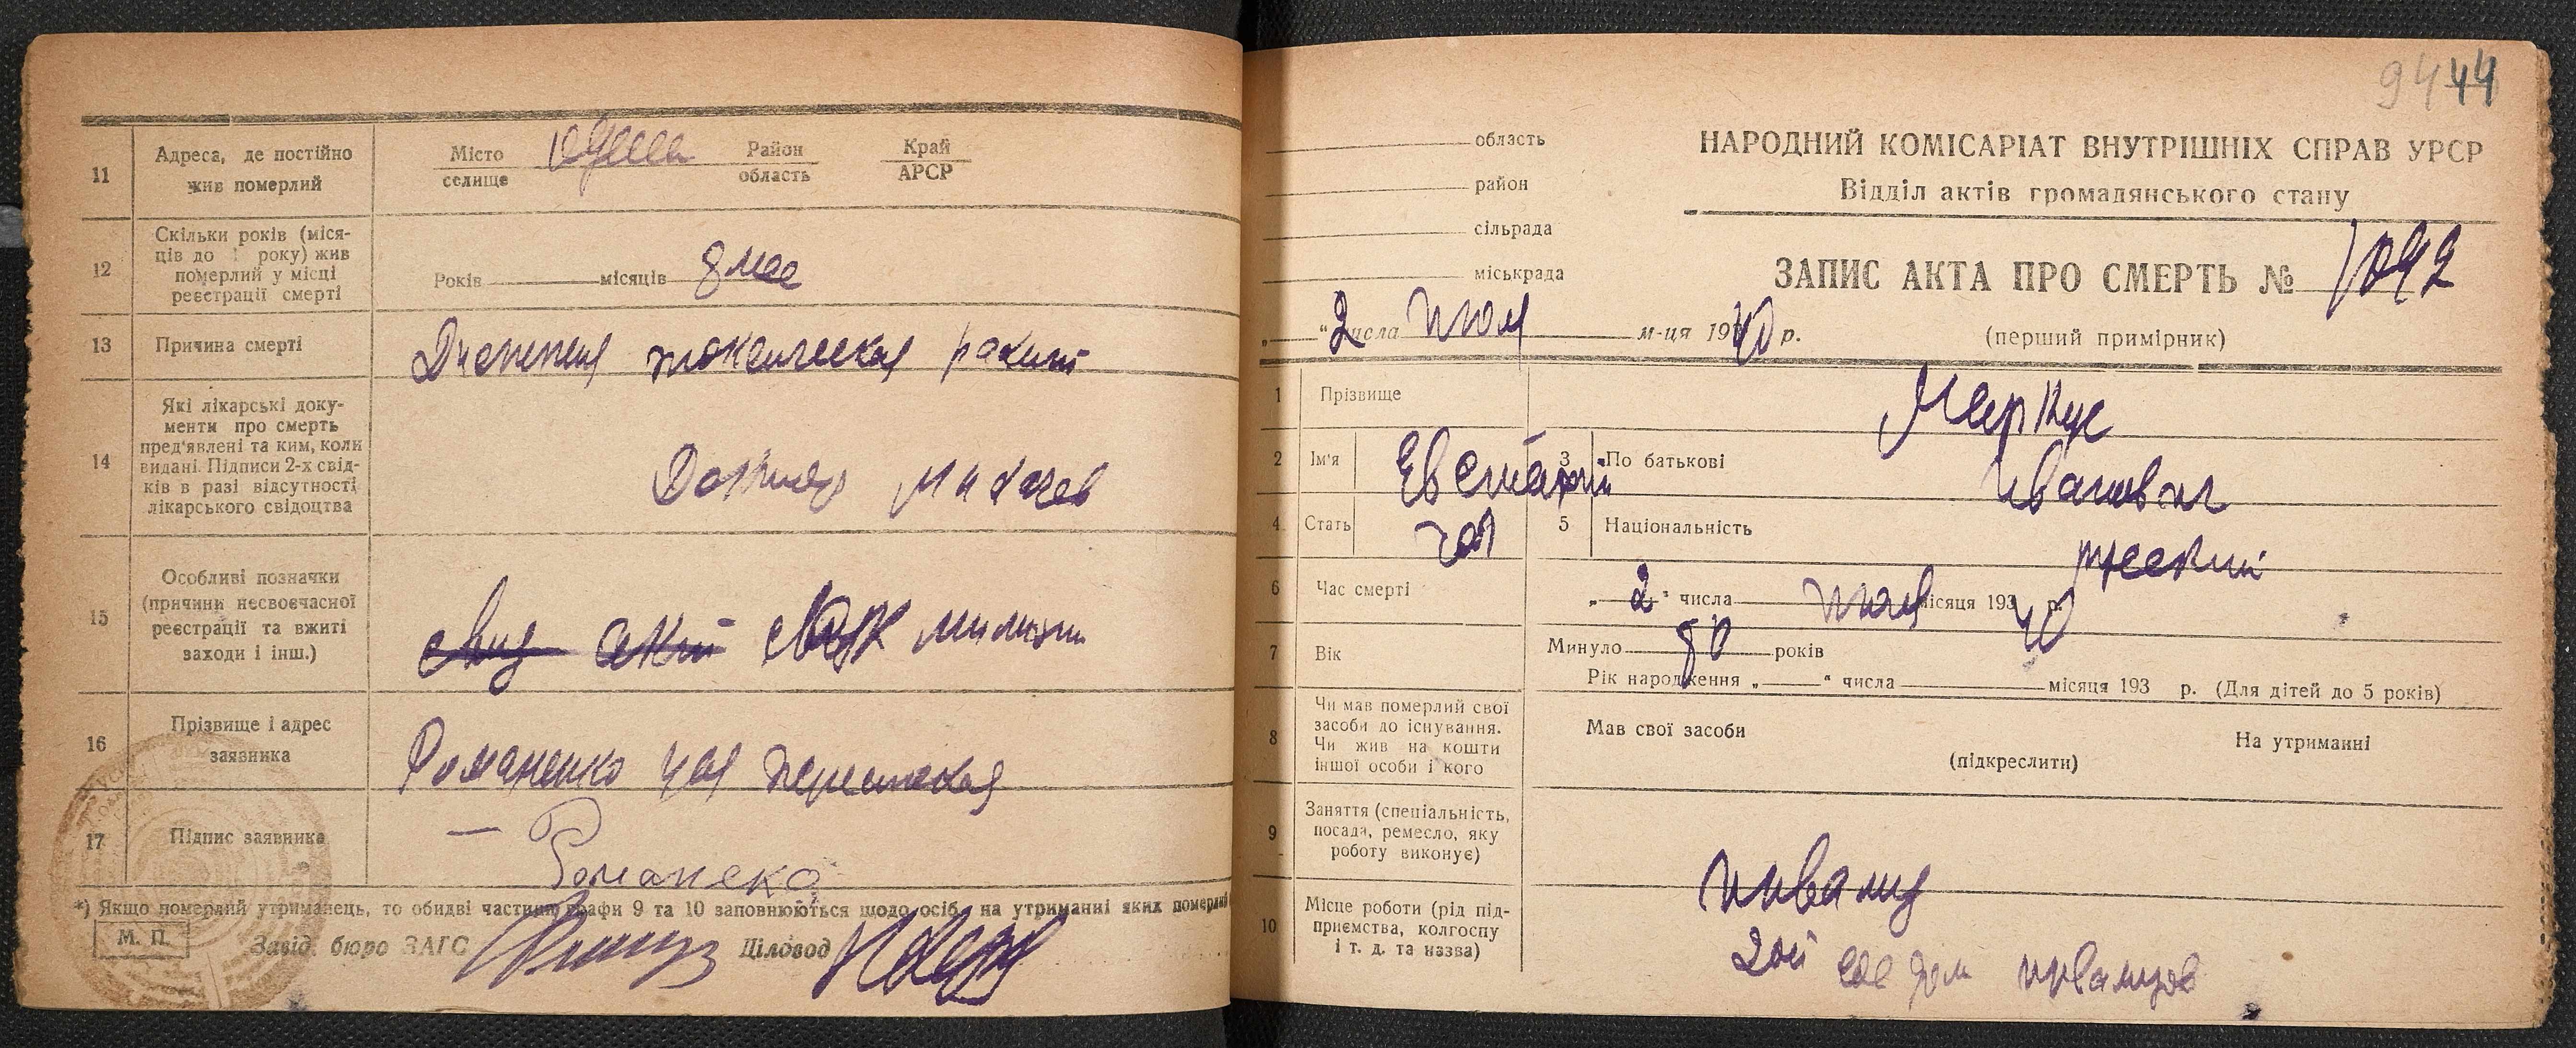 11
Адреса, де постійно
жив померлий
Місто
селище
Одесса
Район
область
Край
АРСР
12
Скільки років (міся-
ців до 1 року) жив
померлий у місці
реєстрації смерті
Років місяців 8 мес
13
Причина смерті
токсическая
14
Які лікарські доку-
менти про смерть
пред'явлені та ким, коли
видані. Підписи 2-х свід-
ків в разі відсутності
лікарського свідоцтва
15
Особливі позначки
(причини несвоєчасної
реєстрації та вжиті
заходи і інш.)
акт милиции
16
Прізвище і адрес
заявника
Романенко
17
Підпис заявника
— Романеко
*) Якщо померлий утриманець, то обидві частини графи 9 та 10 заповнюються щодо осіб, на утриманні яких померлий
М. П.
Завід. бюро ЗАГС Діловод
9444
область
район
сільрада
міськрада
НАРОДНИЙ КОМІСАРІАТ ВНУТРІШНІХ СПРАВ УРСР
Відділ актів громадянського стану
ЗАПИС АКТА ПРО СМЕРТЬ № 1042
„ “ 2 числа июля м-ця 1940 р.
(перший примірник)
1 Прізвище Маркус
2 Ім'я Евстафий 3 По батькові Иванович
4 Стать 5 Національність русский
6 Час смерті „ 2 “ числа июля місяця 193 40 р.
7 Вік
Минуло 80 років
Рік народження „ “ числа місяця 193 р. (Для дітей до 5 років)
8
Чи мав померлий свої
засоби до існування.
Чи жив на кошти
іншої особи і кого
Мав свої засоби
(підкреслити)
На утриманні
9
Заняття (спеціальність,
посада, ремесло, яку
роботу виконує)
инвалид
10
Місце роботи (рід під-
приємства, колгоспу
і т. д. та назва)
2ой дом инвалидов